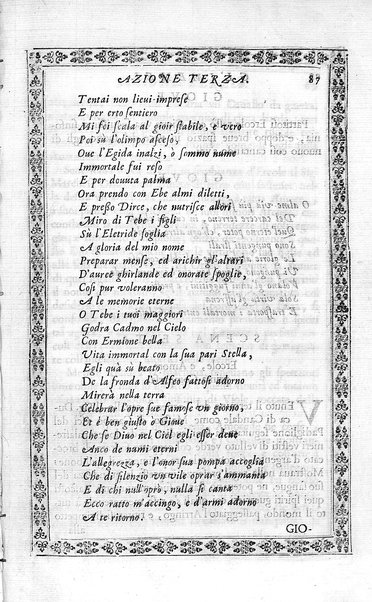 AZIONE TERZA. 87
Tentai non lieui imprese
E per erto sentiero
Mi fei scala al gioir stabile, e vero
Poi sù l'olimpo asceso,
Oue l'Egida inalzi, ò sommo nume
Immortale fui reso
E per douuta palma
Ora prendo con Ebe almi diletti,
E presso Dirce, che nutrisce allori
Miro di Tebe i figli
Sù l'Eletride soglia
A gloria del mio nome
Preparar mense, ed arichir gl'altari
D'auree ghirlande ed onorate spoglie,
Cosi pur voleranno
A le memorie eterne
O Tebe i tuoi maggiori
Godra Cadmo nel Cielo
Con Ermione bella
Vita immortal con la sua pari Stella,
Egli quà sù beato
De la fronda d'Alfeo fattosi adorno
Mirerà nella terra
Celebrar l'opre sue famose vn giorno,
Et è ben giusto ò Gioue
Che se Diuo nel Ciel egli esser deue
Anco de numi eterni
L'allegrezza, e l'onor sua pompa accoglia
Che di silenzio vn vile oprar s'ammanta
E di chi null'oprò, nulla si canta
Ecco ratto m'accingo, e d'armi adorno
A te ritorno.
GIO-